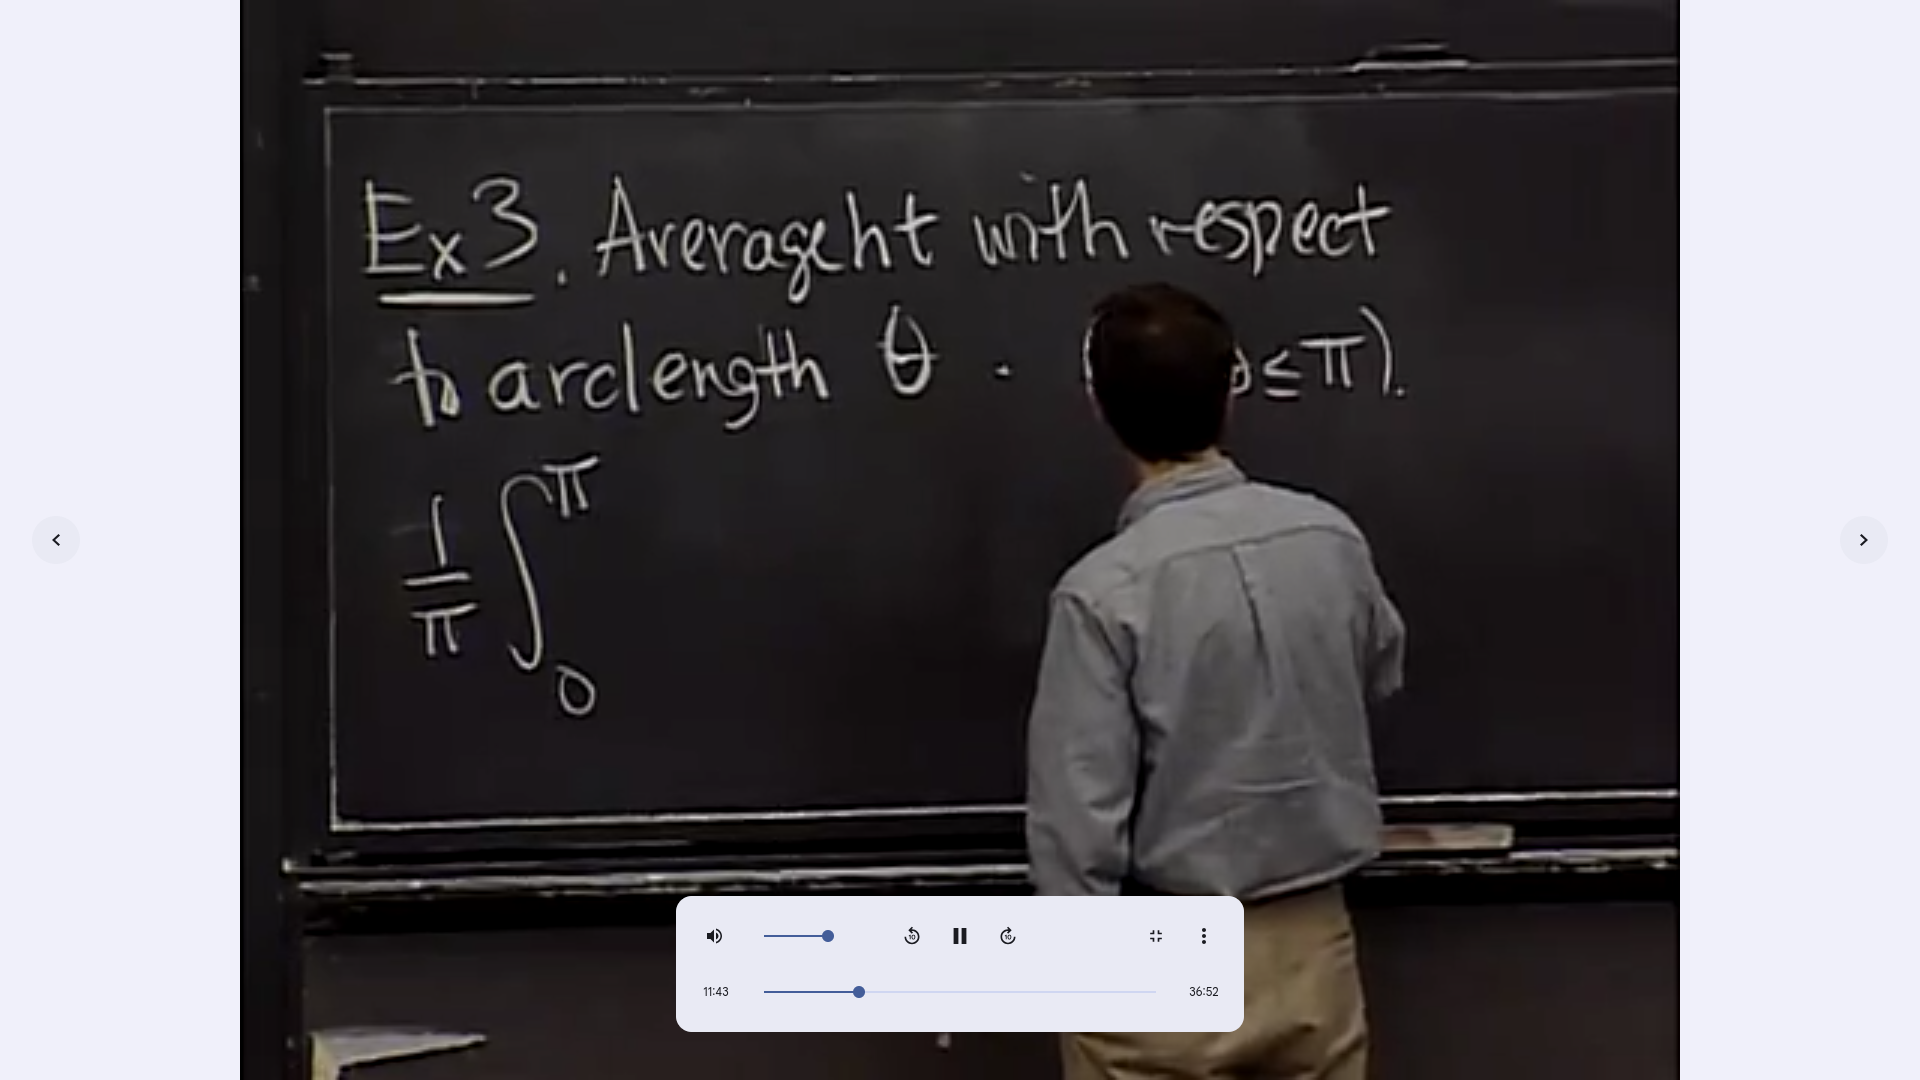 Ex 3. Average ht with respect
to arclength θ. ( ≤ π).
1/π ∫₀^π
10 10
11:43 36:52